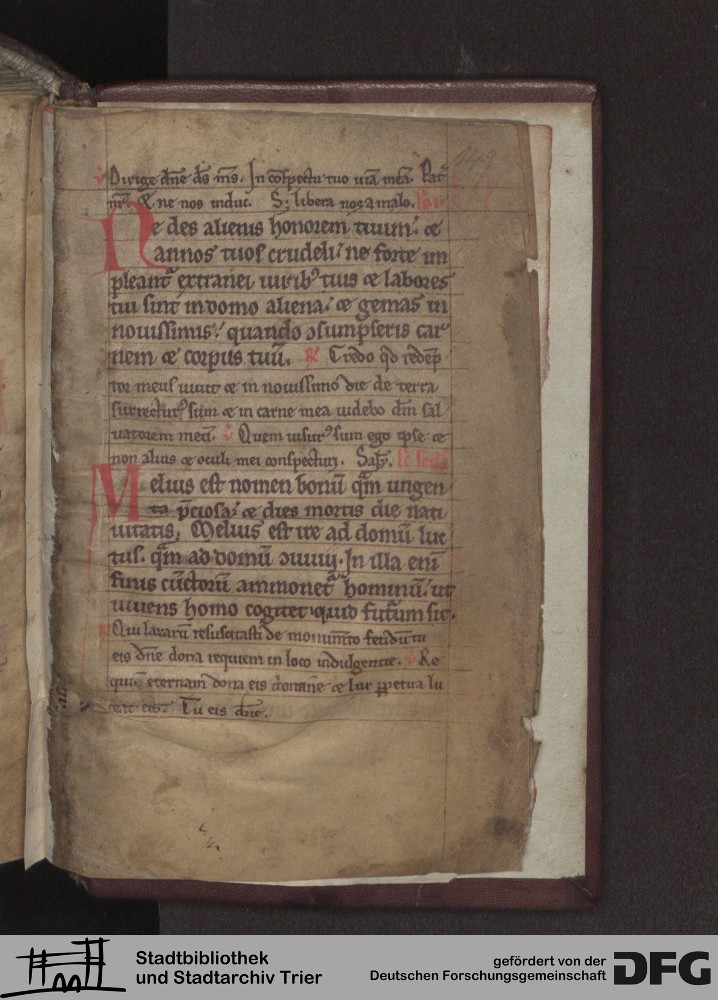 ℣ Dirige dn̄e ds̄ ms̄. In cōspectu tuo uiā meā. Pat̄
nr̄. & ne nos induc. S; libera nos a malo.
Ne des alienis honorem tuum. &
annos tuos crudeli. ne forte im
pleant᷑ extranei uirib᷒ tuis & labores
tui sint in domo aliena. & gemas in
nouissimis. quando ɔsumpseris car
nem & corpus tuū. ℟ Credo qd̄ redēp
tor meus uiuit & in nouissimo die de terra
surrectur᷒ sum & in carne mea uidebo dm̄ sal
uatorem meū. ℣ Quem uisur᷒ sum ego ipse &
non alius & oculi mei conspecturi.
Melius est nomen bonū qm̄ ungen
ta p̄ciosa. & dies mortis die nati
uitatis. Melius est ire ad domū luc
tus. qm̄ ad domū ɔuiuii. In illa enī
finis cūctorū ammonet᷑ hominū. ut
uiuens homo cogitet quid futur̄um sit.
℟ Qui lazarū resuscitasti de monum̄to fetidū tu
eis dn̄e dona requiem in loco indulgentie. ℣ Re
quiē eternam dona eis domine & lux ꝑpetua lu
ceat eis. Tu eis dn̄e.
Stadtbibliothek
und Stadtarchiv Trier
gefördert von der
Deutschen Forschungsgemeinschaft
DFG